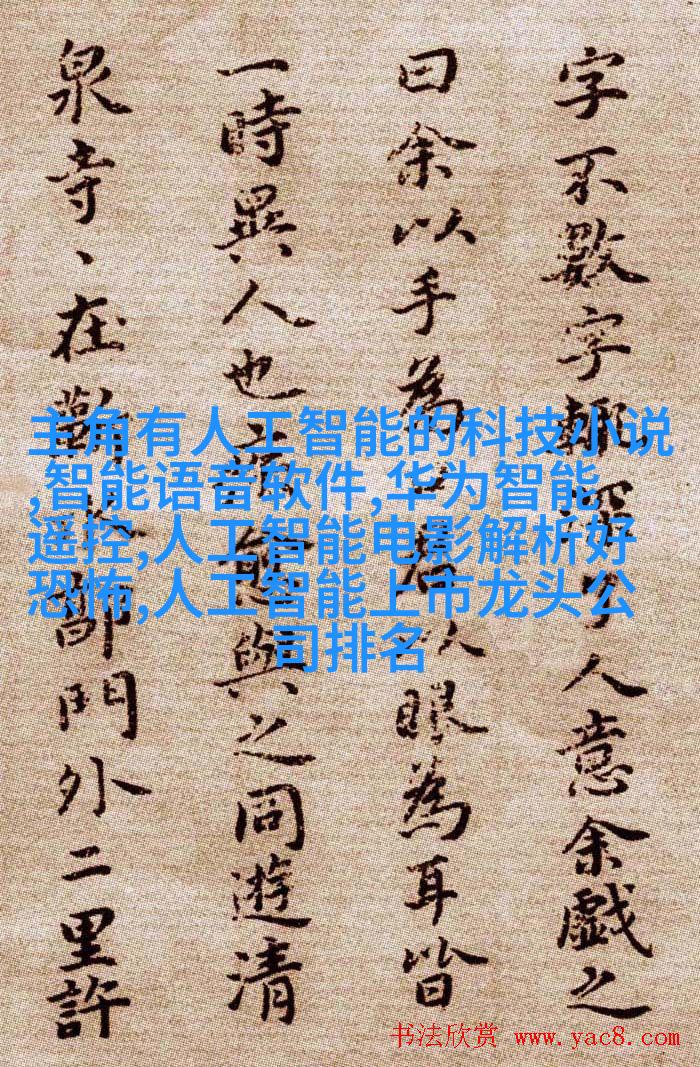 字不數字輒了人意余戲之
曰余以手為君以眼為耳皆
一時異人也與之同遊清
泉寺、在門外二里許
主角有人工智能的科技小说
,智能语音软件,华为智能
遥控,人工智能电影解析好
恐怖,人工智能上市龙头公
司排名
书法欣赏 www.yac8.com